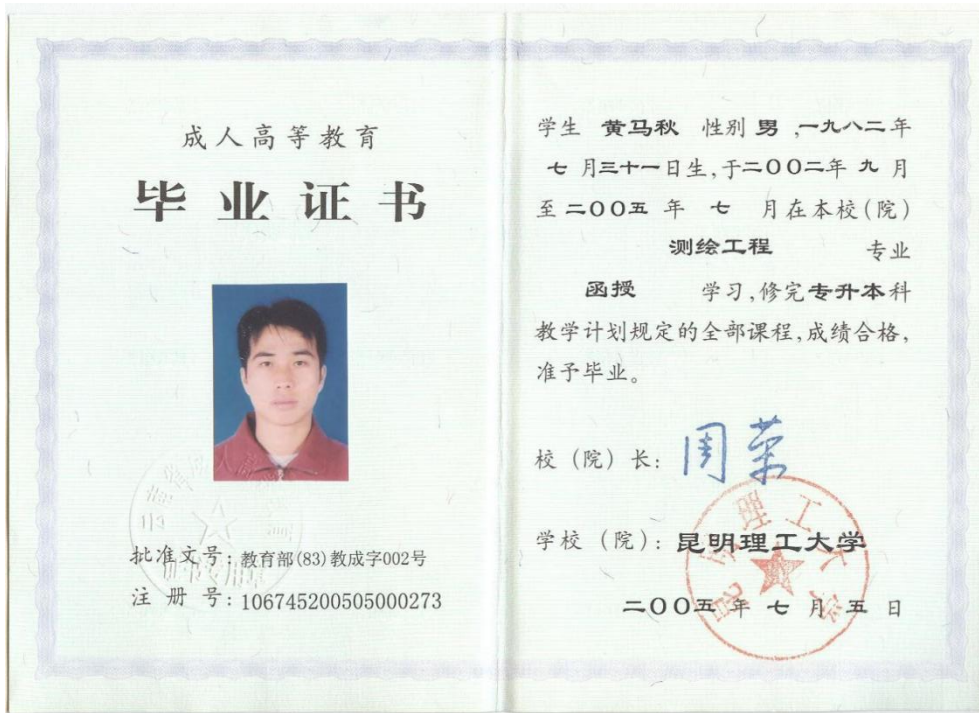 成人高等教育
毕业证书
批准文号:教育部(83)教成字002号
注 册 号:106745200505000273
学生 黄马秋 性别 男 ,一九八二年
七 月三十一日生,于二〇〇二年 九 月
至 二〇〇五 年 七 月在本校(院)
测绘工程 专业
函授 学习,修完专升本科
教学计划规定的全部课程,成绩合格,
准予毕业。
校(院)长: 周荣
学校(院):昆明理工大学
二〇〇五 年 七 月 五 日
昆明理工大学